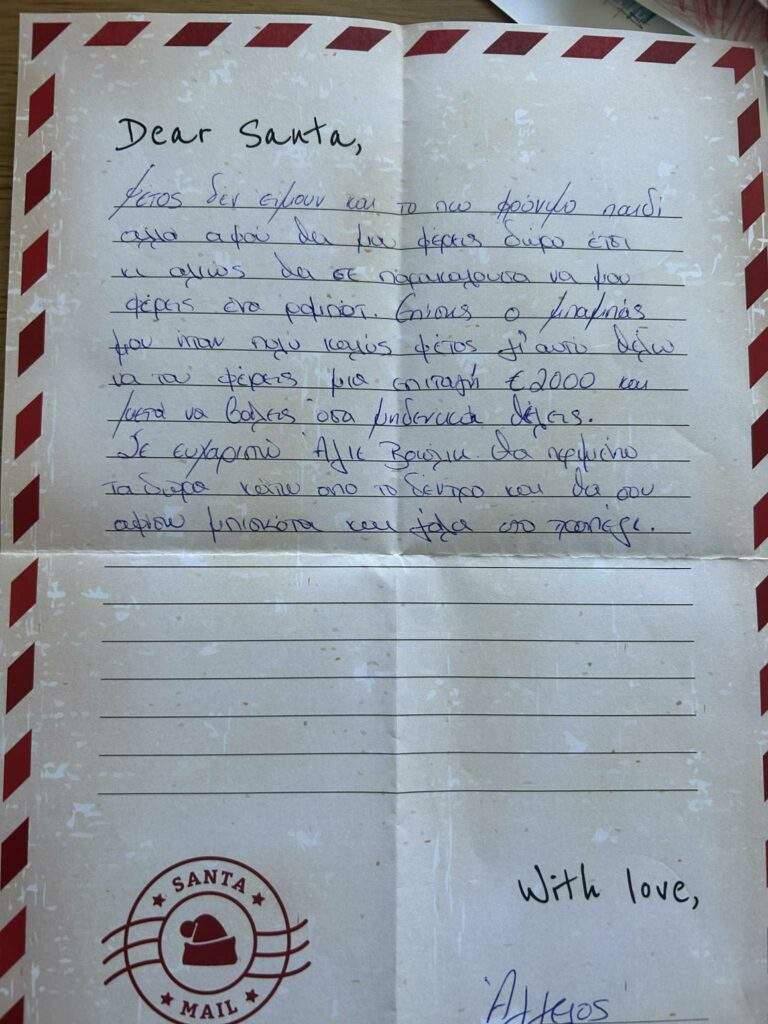 Dear Santa,
Φετος δεν ειμουν και το πιο φρόνιμο παιδί
αλλά αφού θα μου φέρεις δώρο έτσι
κι αλλιώς θα σε παρακαλουσα να μου
φέρεις ένα ρομπότ. Επίσης ο μπαμπάς
μου ηταν πολυ καλός φέτος γι' αυτό θέλω
να του φέρεις μια επιταγή €2000 και
μετά να βάλεις όσα μηδενικά θέλεις.
Σε ευχαριστώ Άγιε Βασίλη. Θα περιμένω
τα δώρα κάτω απο το δέντρο και θα σου
αφίσω μπισκότα και γάλα στο τραπέζι.
SANTA
MAIL
With love,